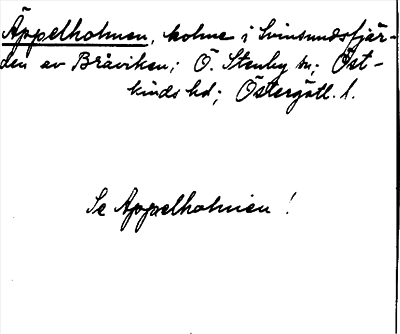 Äppelholmen, holme i Svinsundsfjär-
den av Bråviken; Ö. Stenby sn; Öst-
kinds hd; Östergötl. l.
Se Appelholmen!